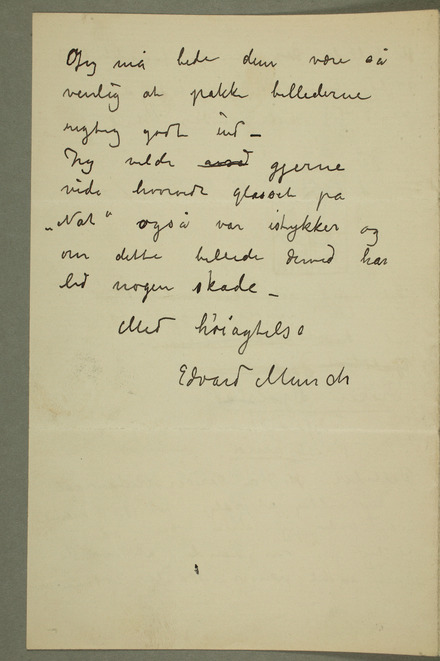 Jeg må bede dem være så
venlig at pakke billederne
rigtig godt ind –
Jeg vilde gjerne
vide hvorvidt glasset på
„Nat" også var istykker og
om dette billede derved har
lid nogen skade –
Med höiagtelse
Edvard Munch